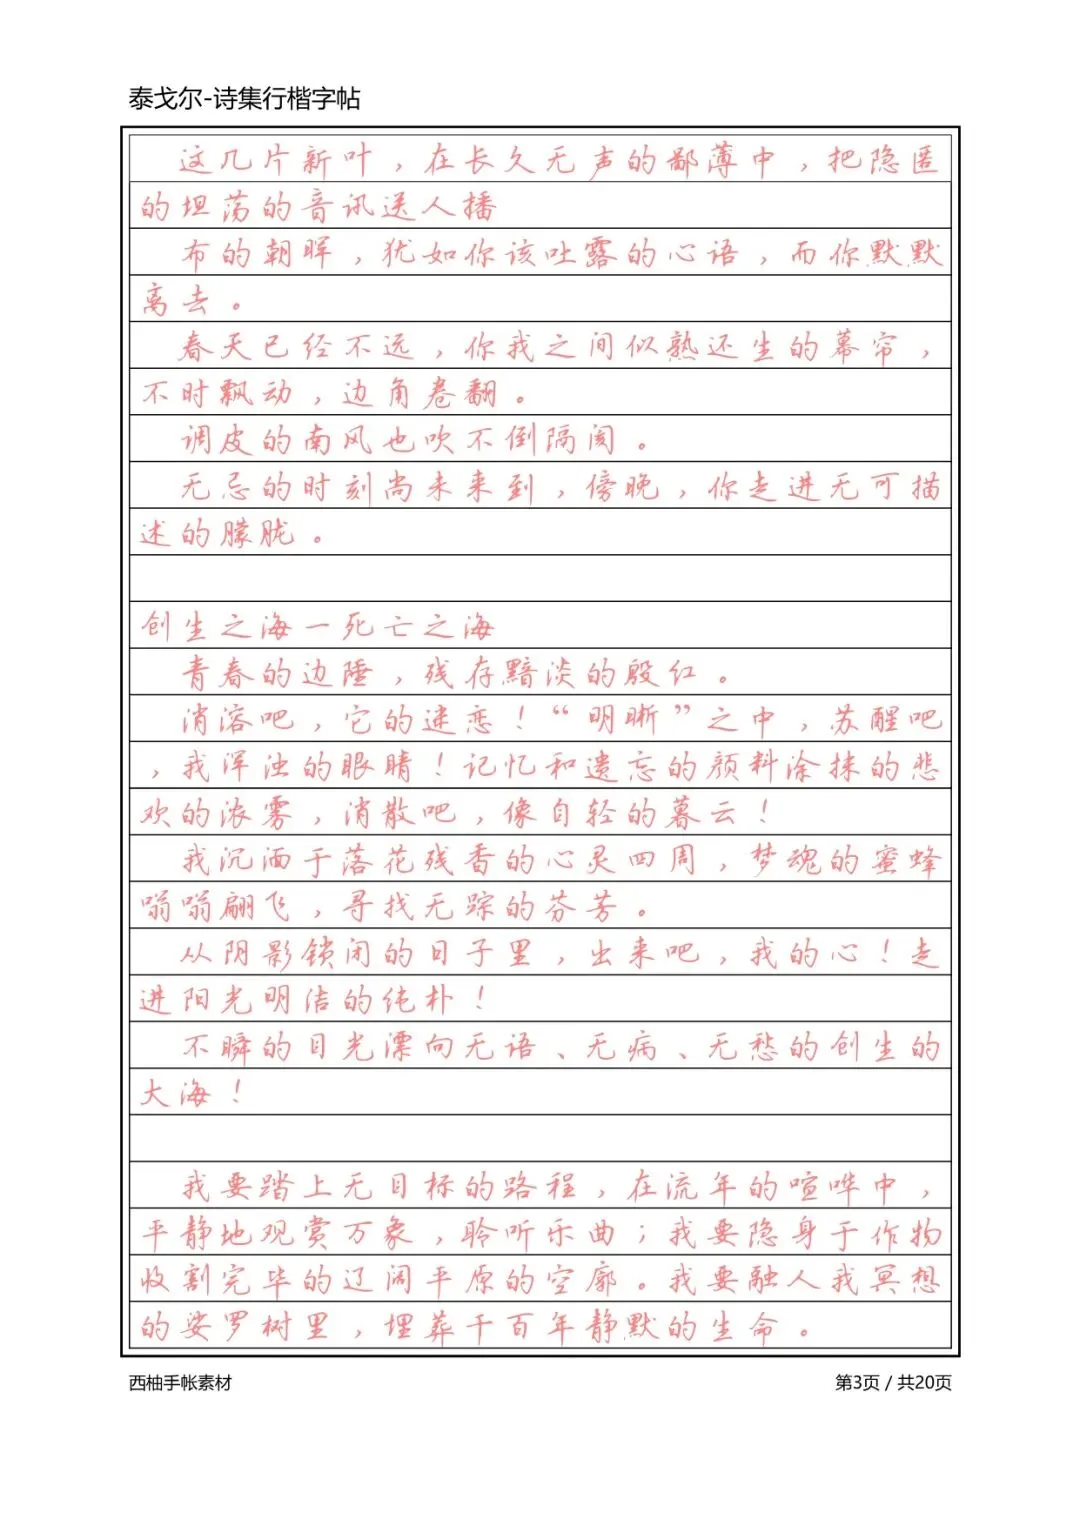 泰戈尔-诗集行楷字帖
这几片新叶，在长久无声的鄙薄中，把隐匿
的坦荡的音讯送人播
布的朝晖，犹如你该吐露的心语，而你默默
离去。
春天已经不远，你我之间似熟还生的幕帘，
不时飘动，边角卷翻。
调皮的南风也吹不倒隔阂。
无忌的时刻尚未来到，傍晚，你走进无可描
述的朦胧。
创生之海一死亡之海
青春的边陲，残存黯淡的殷红。
消溶吧，它的迷恋！“明晰”之中，苏醒吧
，我浑浊的眼睛！记忆和遗忘的颜料涂抹的悲
欢的浓雾，消散吧，像自轻的暮云！
我沉湎于落花残香的心灵四周，梦魂的蜜蜂
嗡嗡翩飞，寻找无踪的芬芳。
从阴影锁闭的日子里，出来吧，我的心！走
进阳光明洁的纯朴！
不瞬的目光漂向无语、无病、无愁的创生的
大海！
我要踏上无目标的路程，在流年的喧哗中，
平静地观赏万象，聆听乐曲；我要隐身于作物
收割完毕的辽阔平原的空廓。我要融人我冥想
的娑罗树里，埋葬千百年静默的生命。
西柚手帐素材
第3页 / 共20页